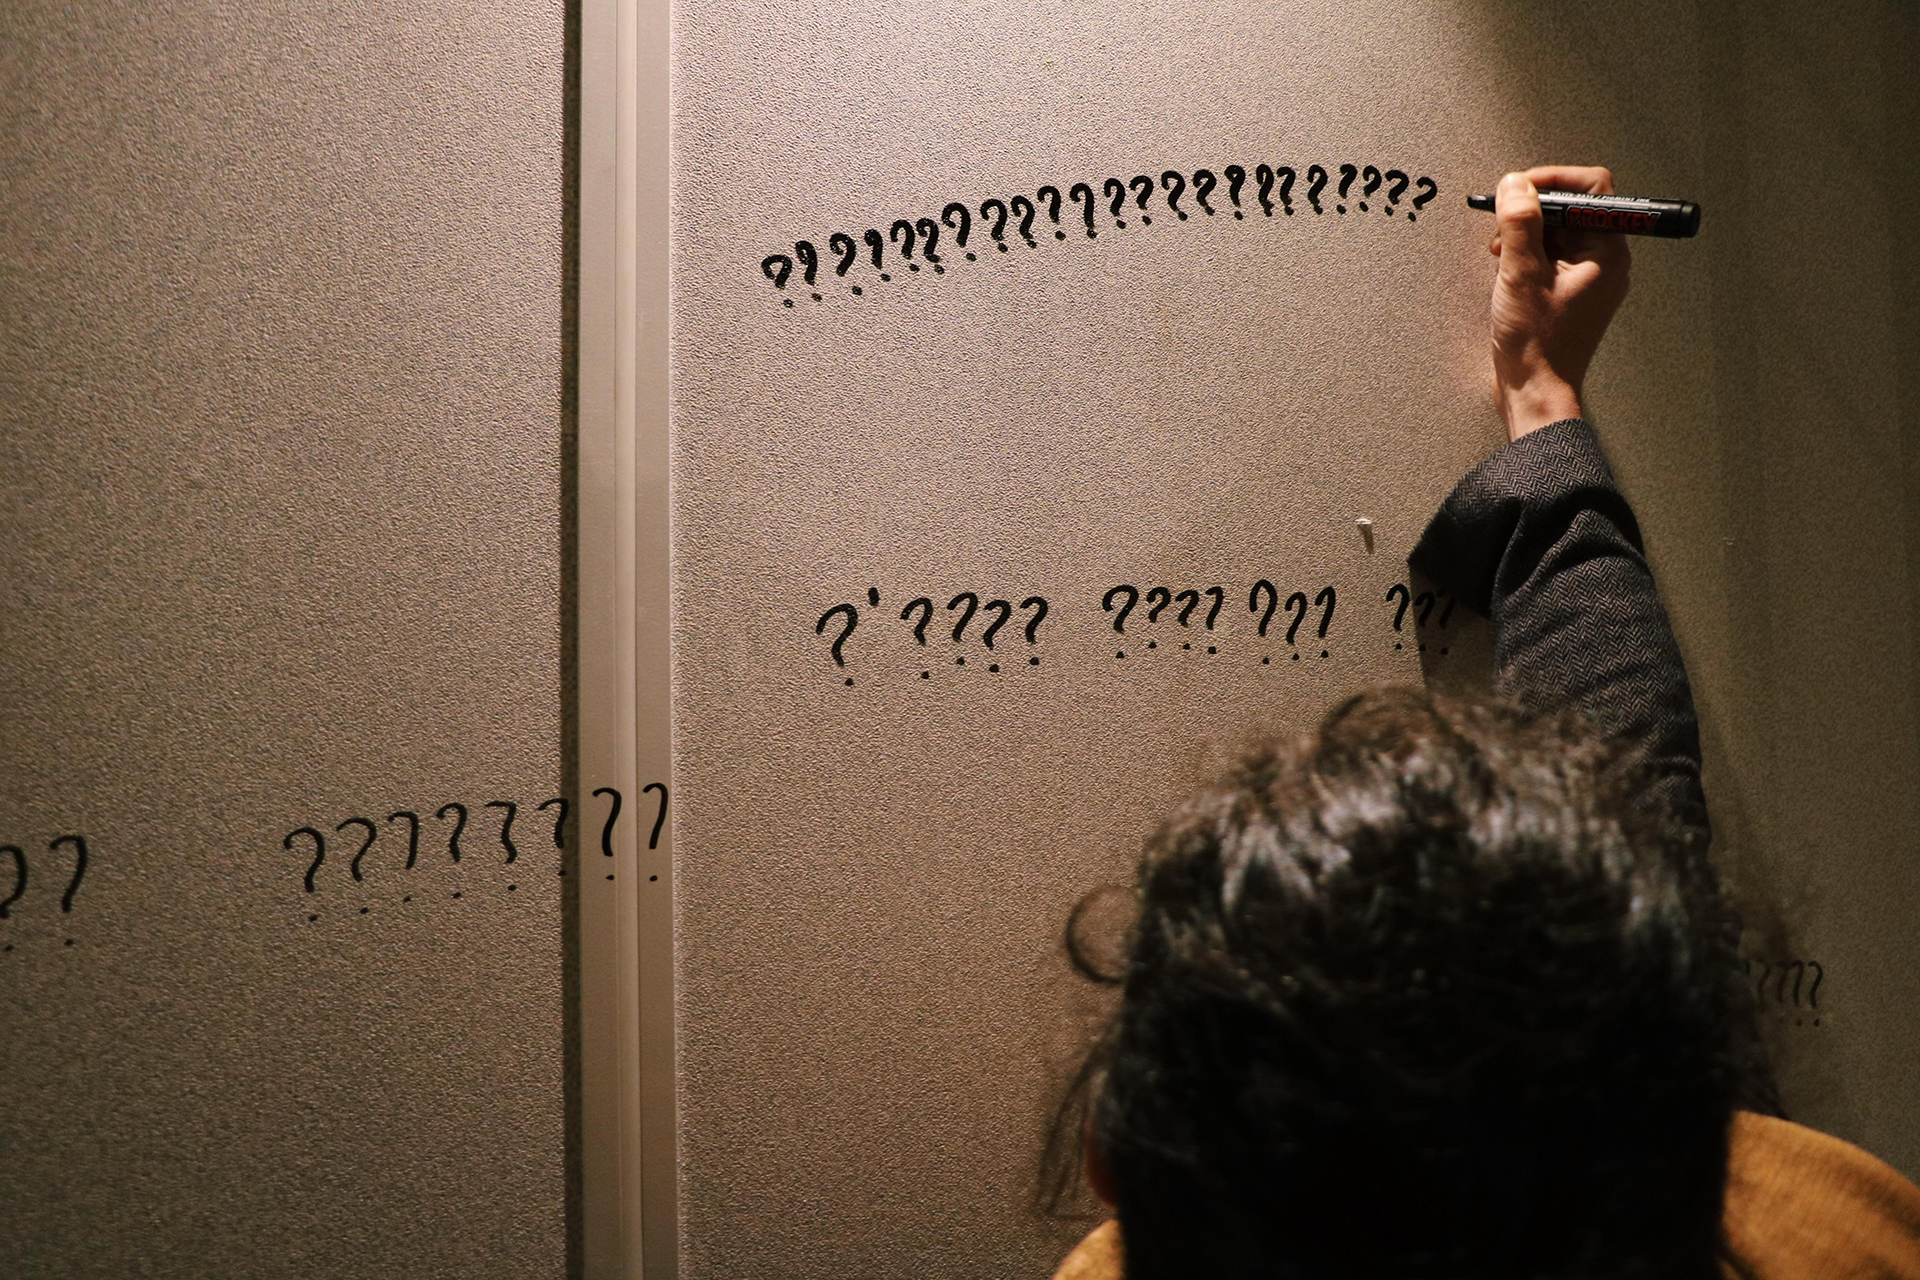 ???????????????????????
?'???? ???? ??? ???
?? ????????
????
BROCKEY